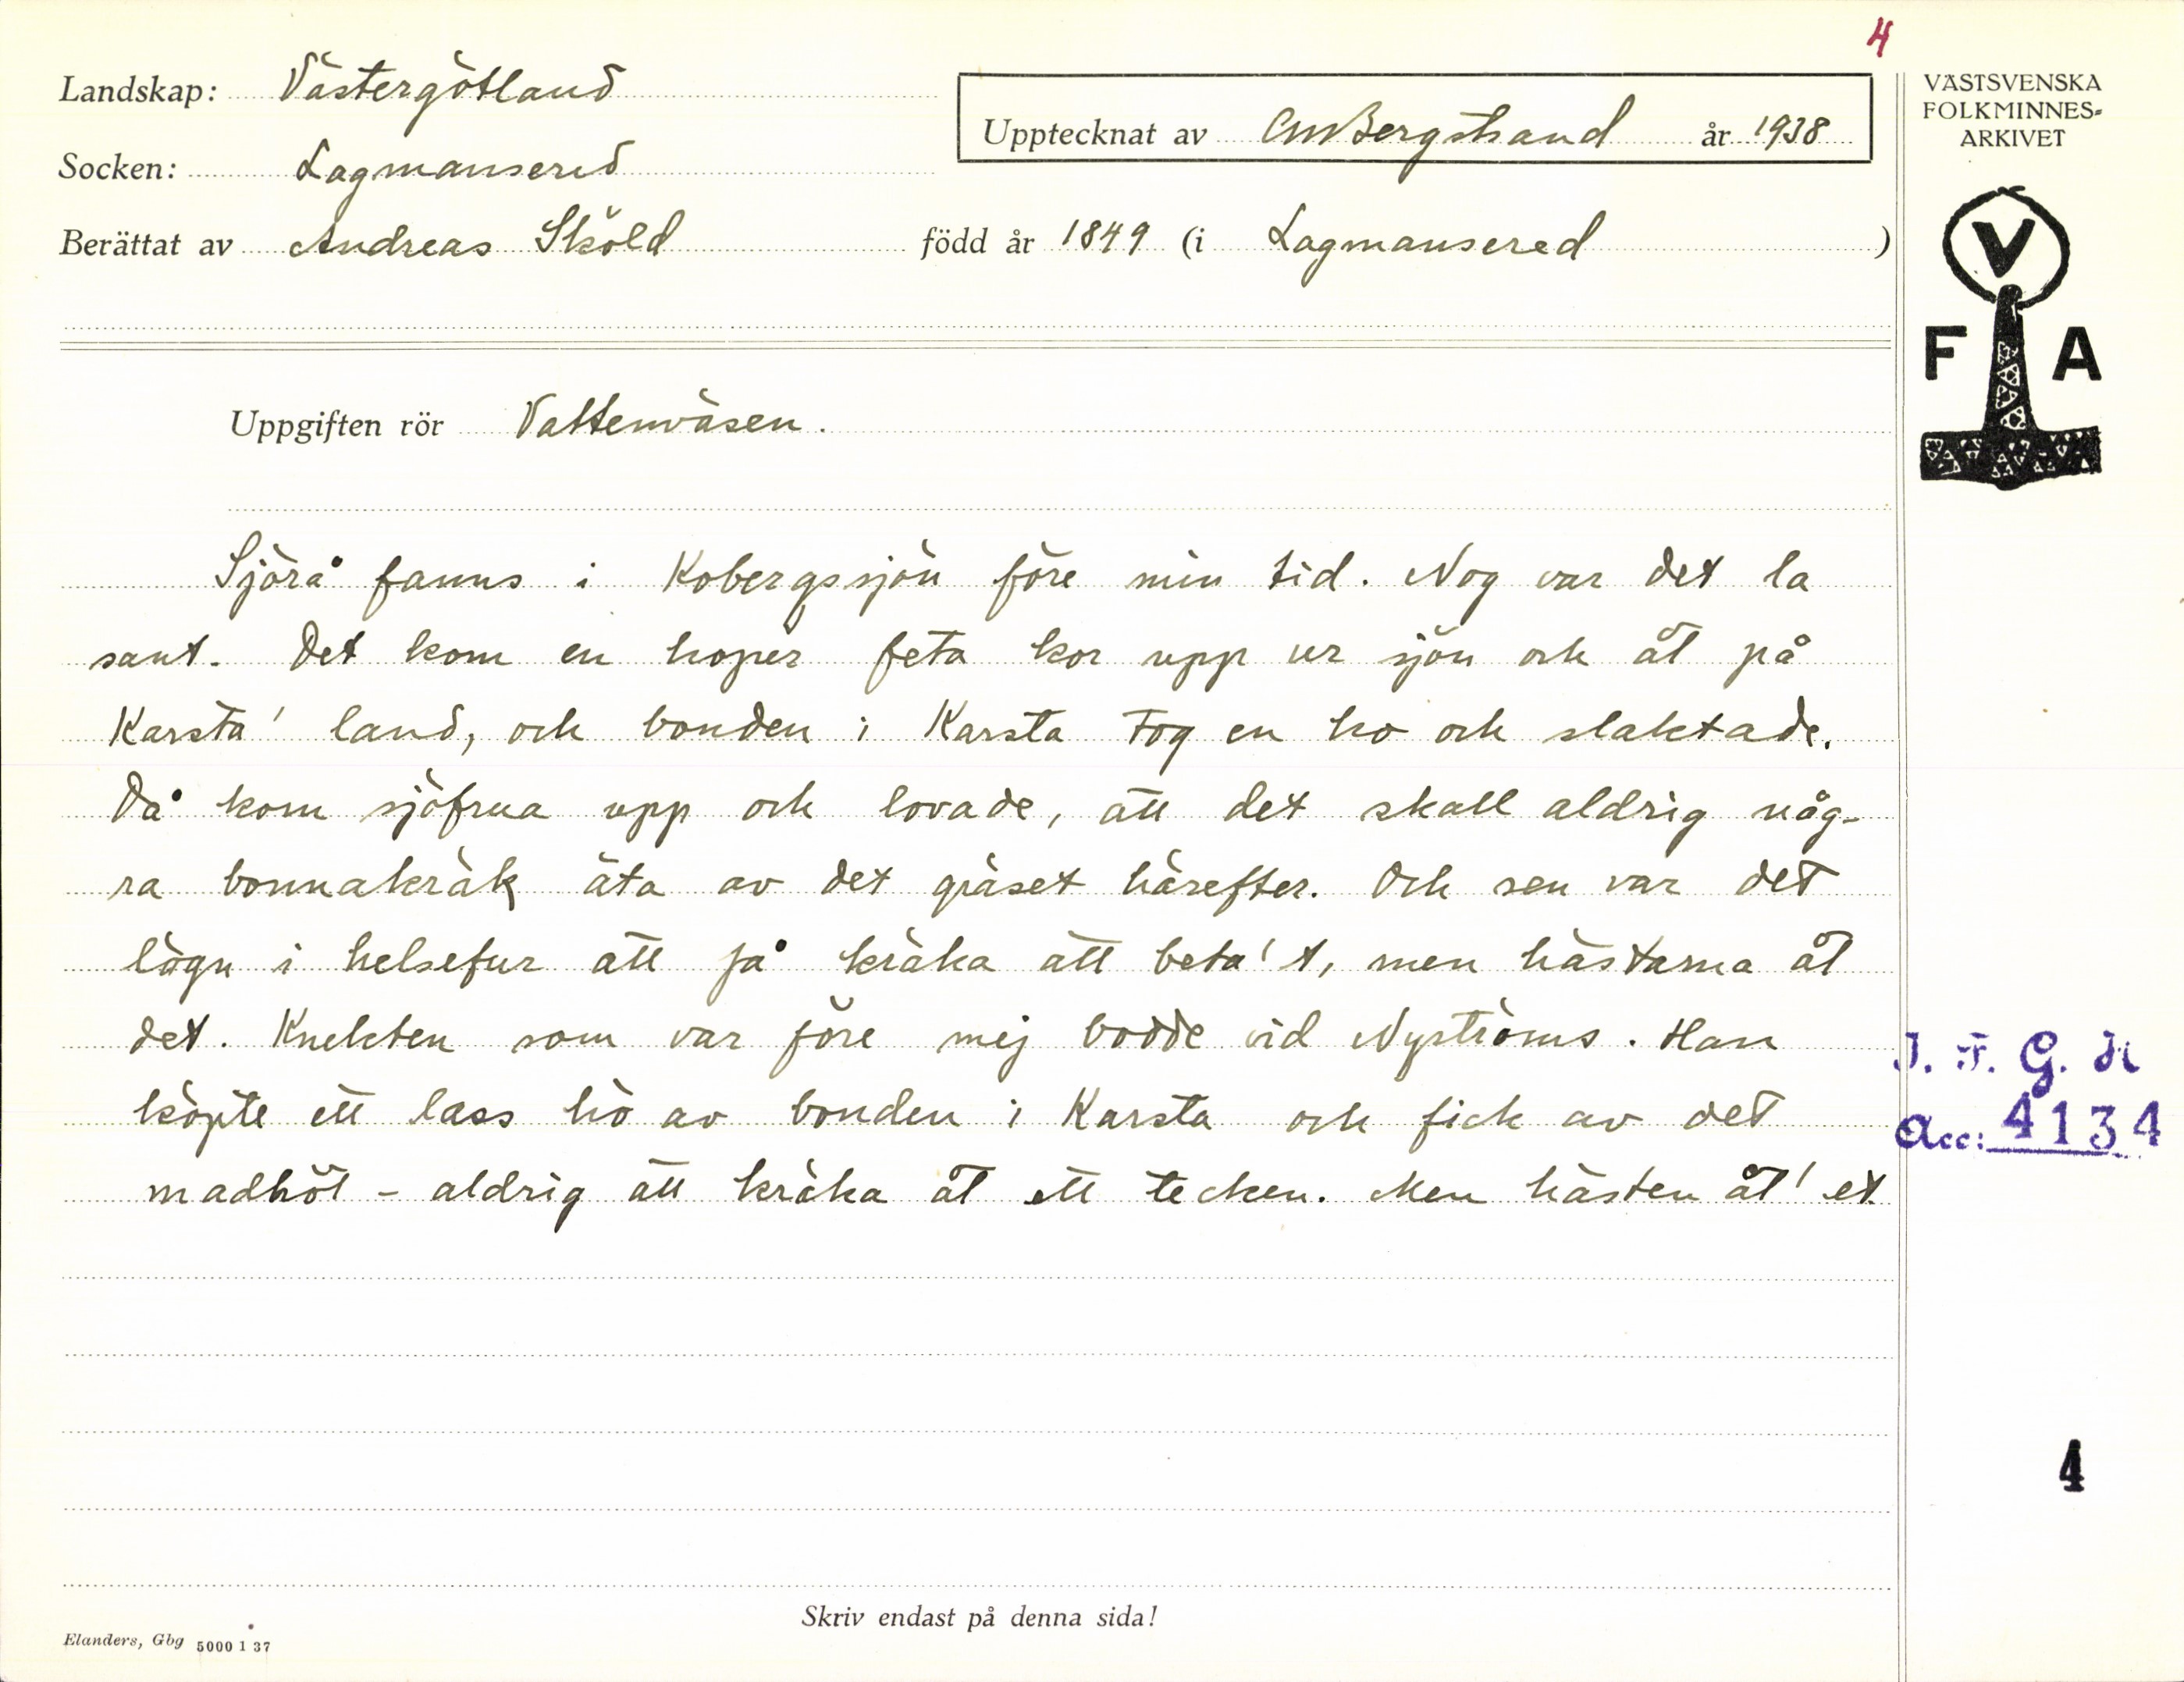 4
Landskap: Västergötland
Upptecknat av CM Bergstrand år 1938
Socken: Lagmansered
Berättat av Andreas Sköld född år 1849 (i Lagmansered)
VÄSTSVENSKA
FOLKMINNES=
ARKIVET
V
F A
Uppgiften rör Vattenväsen.
Sjörå fanns i Kobergssjön före min tid. Nog var det la
sant. Det kom en hoper feta kor upp ur sjön och åt på
Karsta' land, och bonden i Karsta tog en ko och slaktade.
Då kom sjöfrua upp och lovade, att det skall aldrig någ-
ra bonnakräk äta av det gräset härefter. Och sen var det
lögn i helsefur att få kräka att beta't, men hästarna åt
det. Knekten som var före mej bodde vid Nyströms. Han
köpte ett lass hö av bonden i Karsta och fick av det
madhöt - aldrig att kräka åt ett tecken. Men hästen åt'et.
I. F. G. H
Acc: 4134
4
Skriv endast på denna sida!
Elanders, Gbg 5000 1 37